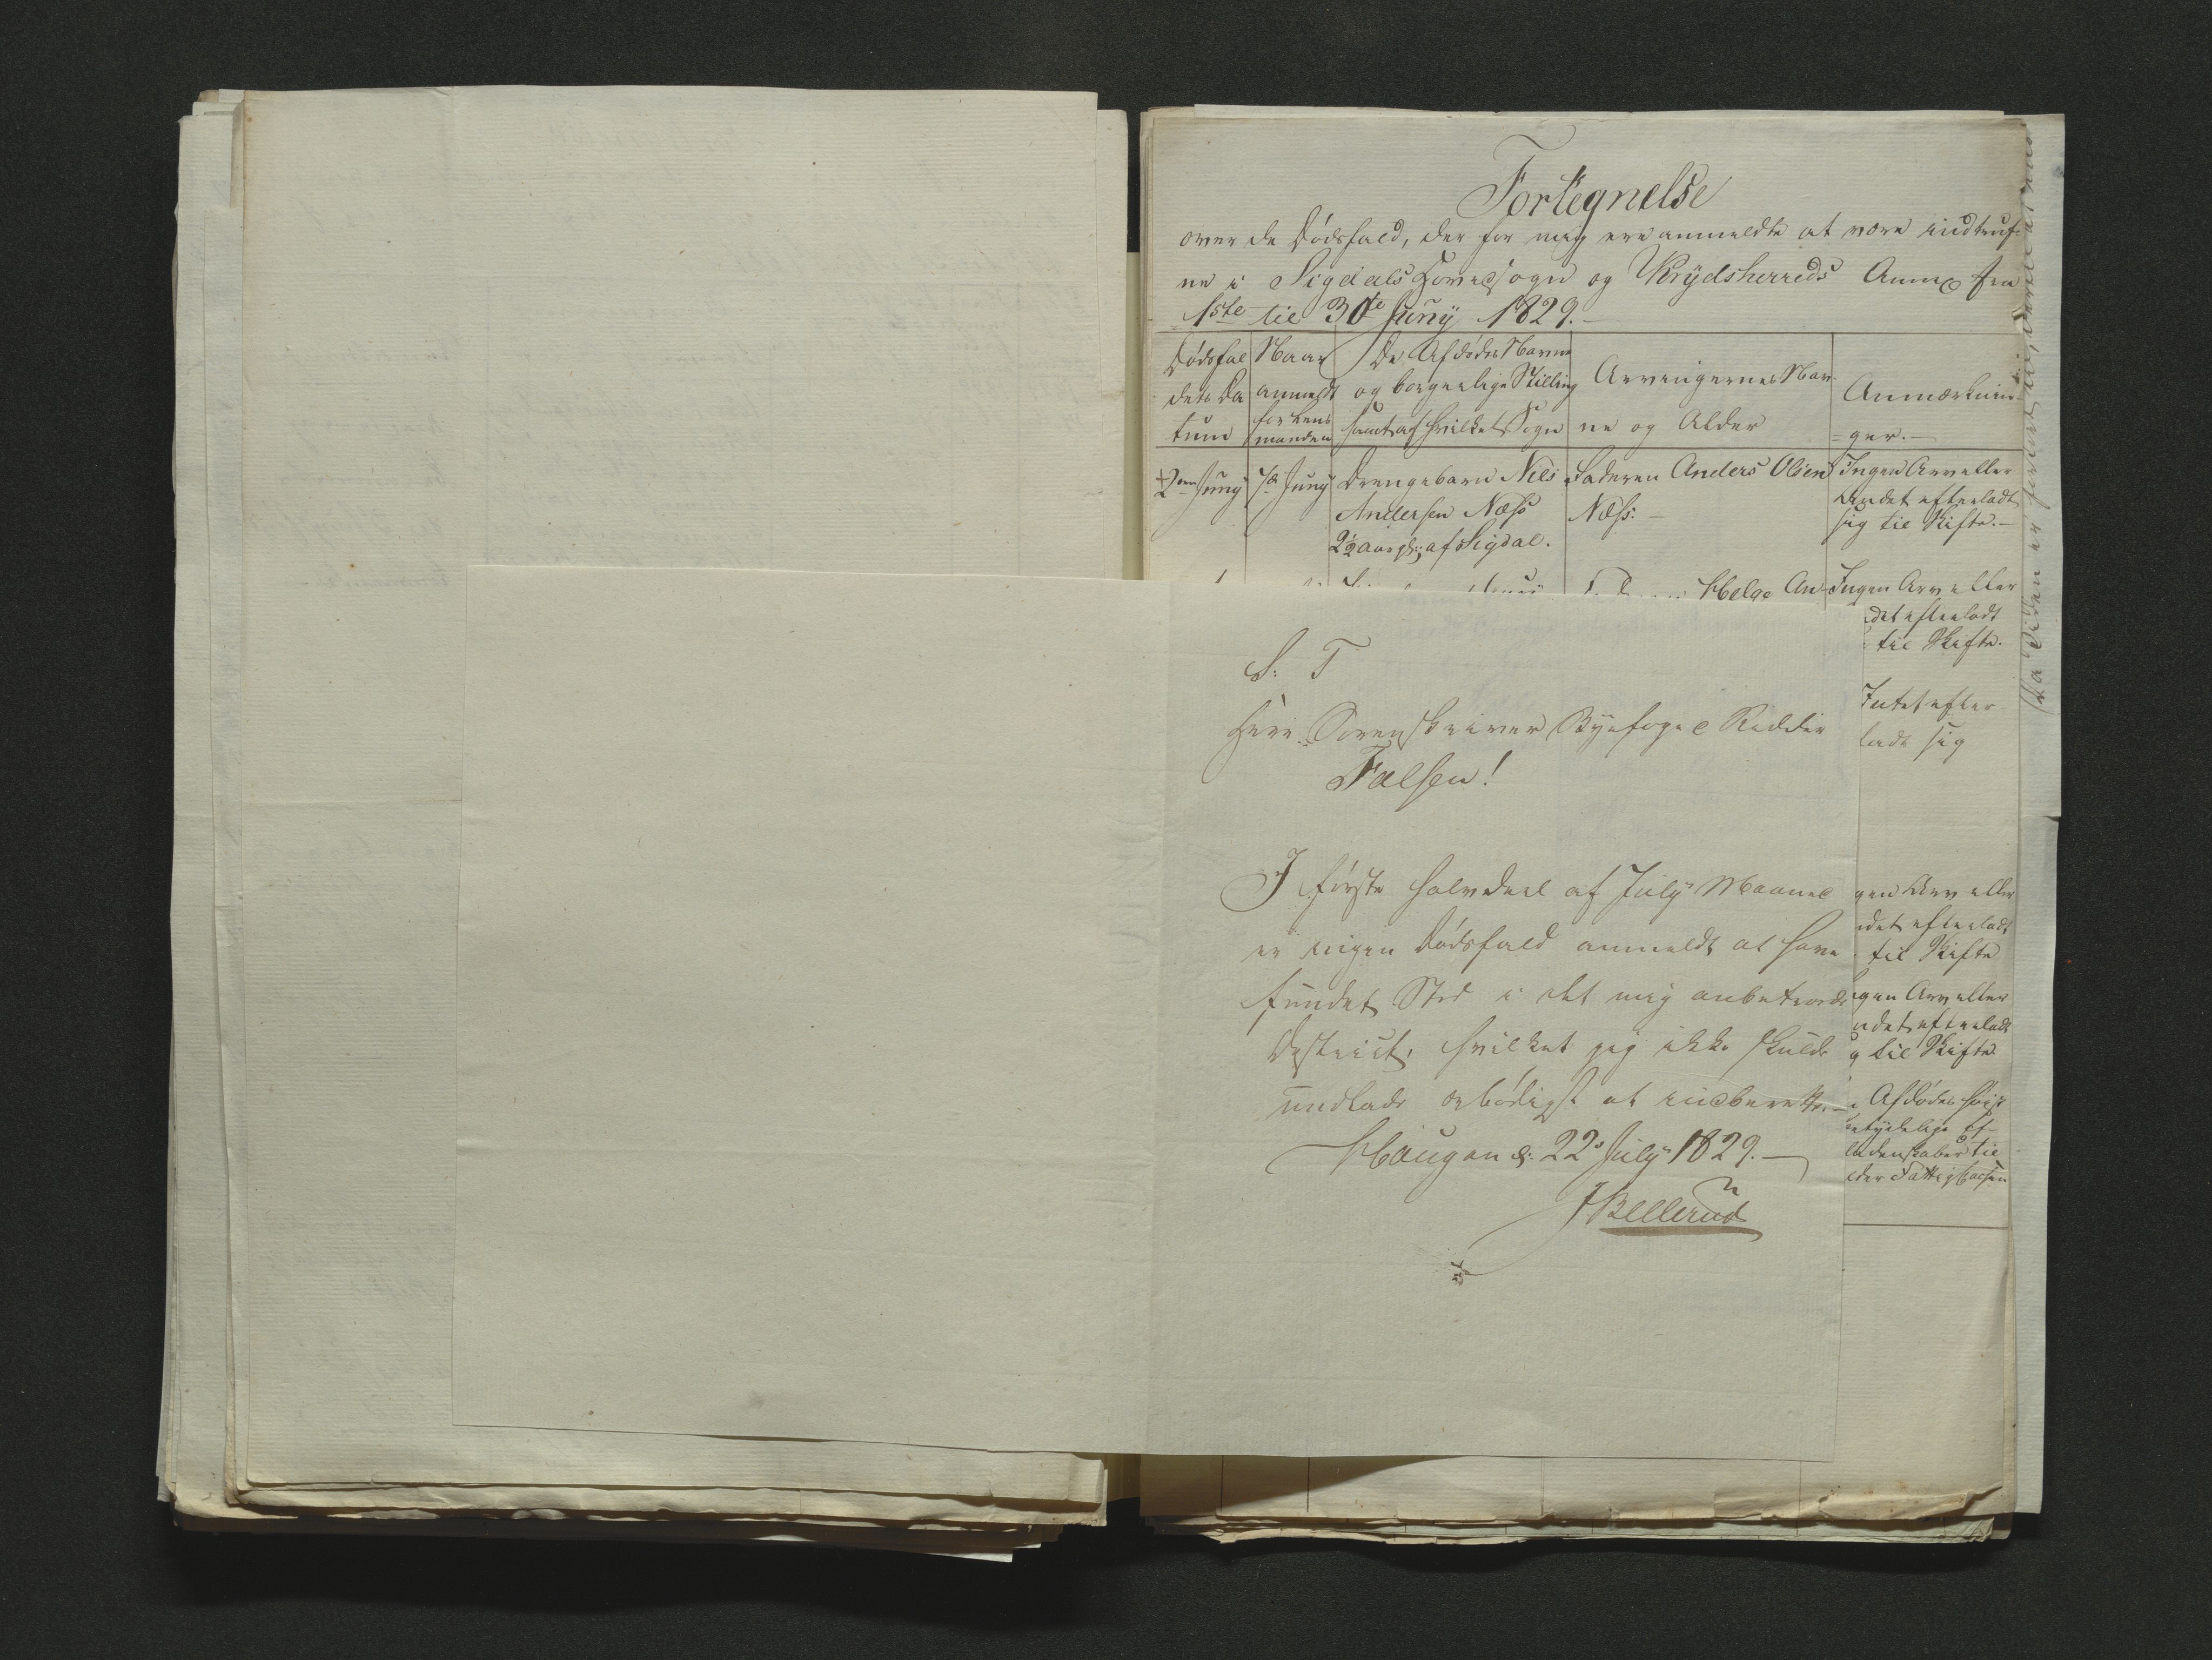 Fortegnelse
over de Dødsfald, der for mig ere anmeldte at være indtruf-
ne i Sigdals Hovedsogn og Krydsherreds Annex fra
1ste til 30te Juny 1829.-
Dødsfal
dets Da
tum
Naar
anmeldt
for Lens
manden
De Afdødes Navne
og borgerlige Stilling
samt af hvilket Sogn
Arvingernes Nav-
ne og Alder
Anmærknin-
=ger.-
2den Juny
7de Juny
Drengebarn Nils
Andersen Næss
2½ Aar gl: af Sigdal.
Faderen Anders Olsen
Næss.-
Ingen Arv eller
andet efterladt
sig til Skifte.-
Helge An-
Ingen Arv eller
det efterladt
til Skifte.
Intet efter-
ladt sig
gen Arv eller
det efterladt
til Skifte
gen Arv eller
ndet efterladt
g til Skifte
Afdødes høist
ubetydelige Ef-
ladenskaber til
der Fattigkassen
S. T
Herr Sorenskriver Byefoged Ridder
Falsen!
I første halvdeel af July Maaned
er ingen Dødsfald anmeldt at have
fundet Sted i det mig anbetroede
District, hvilket jeg ikke skulde
undlade ærbødigst at indberette.-
Haugan d: 22de July 1829.-
JBellerud